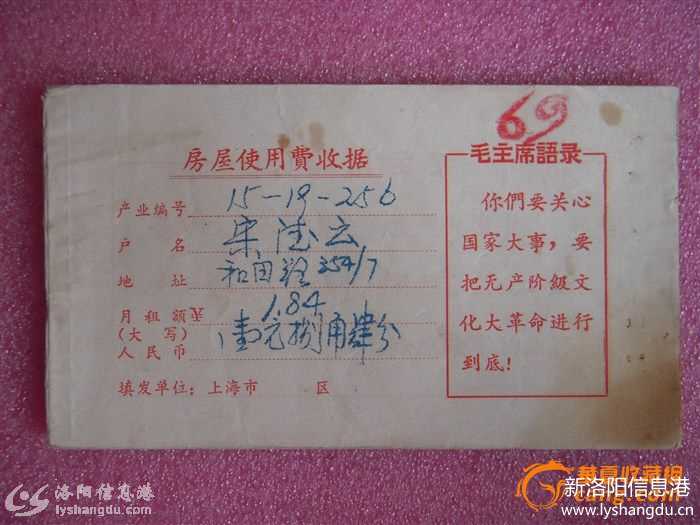 69
房屋使用費收据
产业编号 15-19-256
户名 宋德云
地址 和田路354/7
月租额¥ 1.84
(大写)
人民币 壹元捌角肆分
填发单位：上海市 区
毛主席語录
你們要关心
国家大事，要
把无产阶級文
化大革命进行
到底！
洛阳信息港
lyshangdu.com
华夏收藏网
新洛阳信息港
www.lyshangdu.cn